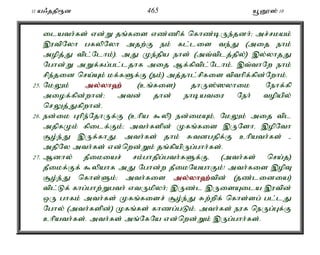 11 யஃததிரூன 465 யூனூஸ் 10
டையவர்கள் என்று தங்களை எண்ணிக் கொண்டிருந்தனர்; அச்சமயம்
இரவிலோ பகலிலோ அதற்கு நம் கட்டளை வந்து (அதை நாம்
அழித்து விட்டோம்). அது முந்திய நாள் (அவ்விடத்தில்) இல்லாதது
போன்று அறுக்கப்பட்டதாக அதை ஆக்கிவிட்டோம். இவ்வாறே நாம்
சிந்தனை செய்யும் மக்களுக்கு (நம்) அத்தாட்சிகளை விவரிக்கின்றோம்.
25. மேலும் அல்லாஹ் (உங்களை) தாருஸ்ஸலாமை நோக்கி
அழைக்கின்றான்; அவன் தான் நாடியவரை நேர் வழியில்
செலுத்துகிறான்.
26. நன்மை புரிந்தோருக்கு (உரிய கூலி) நன்மையும், மேலும் அதை விட
அதிகமும் கிடைக்கும்; அவர்களின் முகங்களை இருளோ, இழிவோ
சூழ்ந்து இருக்காது. அவர்கள் தாம் சுவனபதிக்கு உரியவர்கள் -
அதிலே அவர்கள் என்றென்றும் தங்கியிருப்பார்கள்.
27. ஆனால் தீமையைச் சம்பாதிப்பவர்களுக்கு, (அவர்கள் செய்த)
தீமைக்குக் கூலியாக அது போன்ற தீமையேயாகும்! அவர்களை இழிவு
சூழ்ந்து கொள்ளும்; அவர்களை அல்லாஹ்வின் (தண்டனையை)
விட்டுக் காப்பாற்றுபவர் எவருமிலர்; இருண்ட இருளையுடைய இரவின்
ஒரு பாகம் அவர்கள் முகங்களைச் சூழ்ந்து சுற்றிக் கொள்ளப் பட்டது
போல் (அவர்களின்) முகங்கள் காணப்படும். அவர்கள் நரக நெருப்புக்கு
உரியவர்கள். அவர்கள் அங்கேயே என்றென்றும் இருப்பார்கள்.